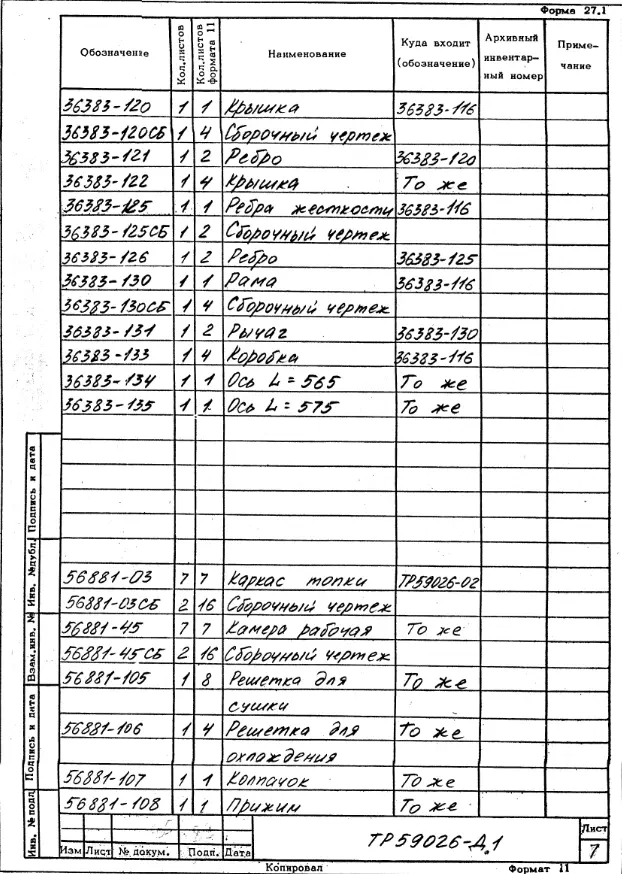 Форма 27.1
Обозначение Кол.листов Кол.листов формата 11 Наименование Куда входит (обозначение) Архивный инвентарный номер Примечание
36383-120 1 1 Крышка 36383-116
36383-120СБ 1 4 Сборочный чертеж
36383-121 1 2 Ребро 36383-120
36383-122 1 4 Крышка То же
36383-125 1 1 Ребра жесткости 36383-116
36383-125СБ 1 2 Сборочный чертеж
36383-126 1 2 Ребро 36383-125
36383-130 1 1 Рама 36383-116
36383-130СБ 1 4 Сборочный чертеж
36383-131 1 2 Рычаг 36383-130
36383-133 1 4 Коробка 36383-116
36383-134 1 1 Ось L=565 То же
36383-135 1 1 Ось L=575 То же
56881-03 7 7 Каркас топки ТР59026-02
56881-03СБ 2 16 Сборочный чертеж
56881-45 7 7 Камера рабочая То же
56881-45СБ 2 16 Сборочный чертеж
56881-105 1 8 Решетка для То же
сушки
56881-106 1 4 Решетка для То же
охлаждения
56881-107 1 1 Колпачок То же
56881-108 1 1 Прижим То же
Инв. № подл. Подпись и дата Взам.инв. № Инв. №дубл. Подпись и дата
ТР59026-Д.1
Лист
7
Изм Лист № докум. Подп. Дата
Копировал Формат 11